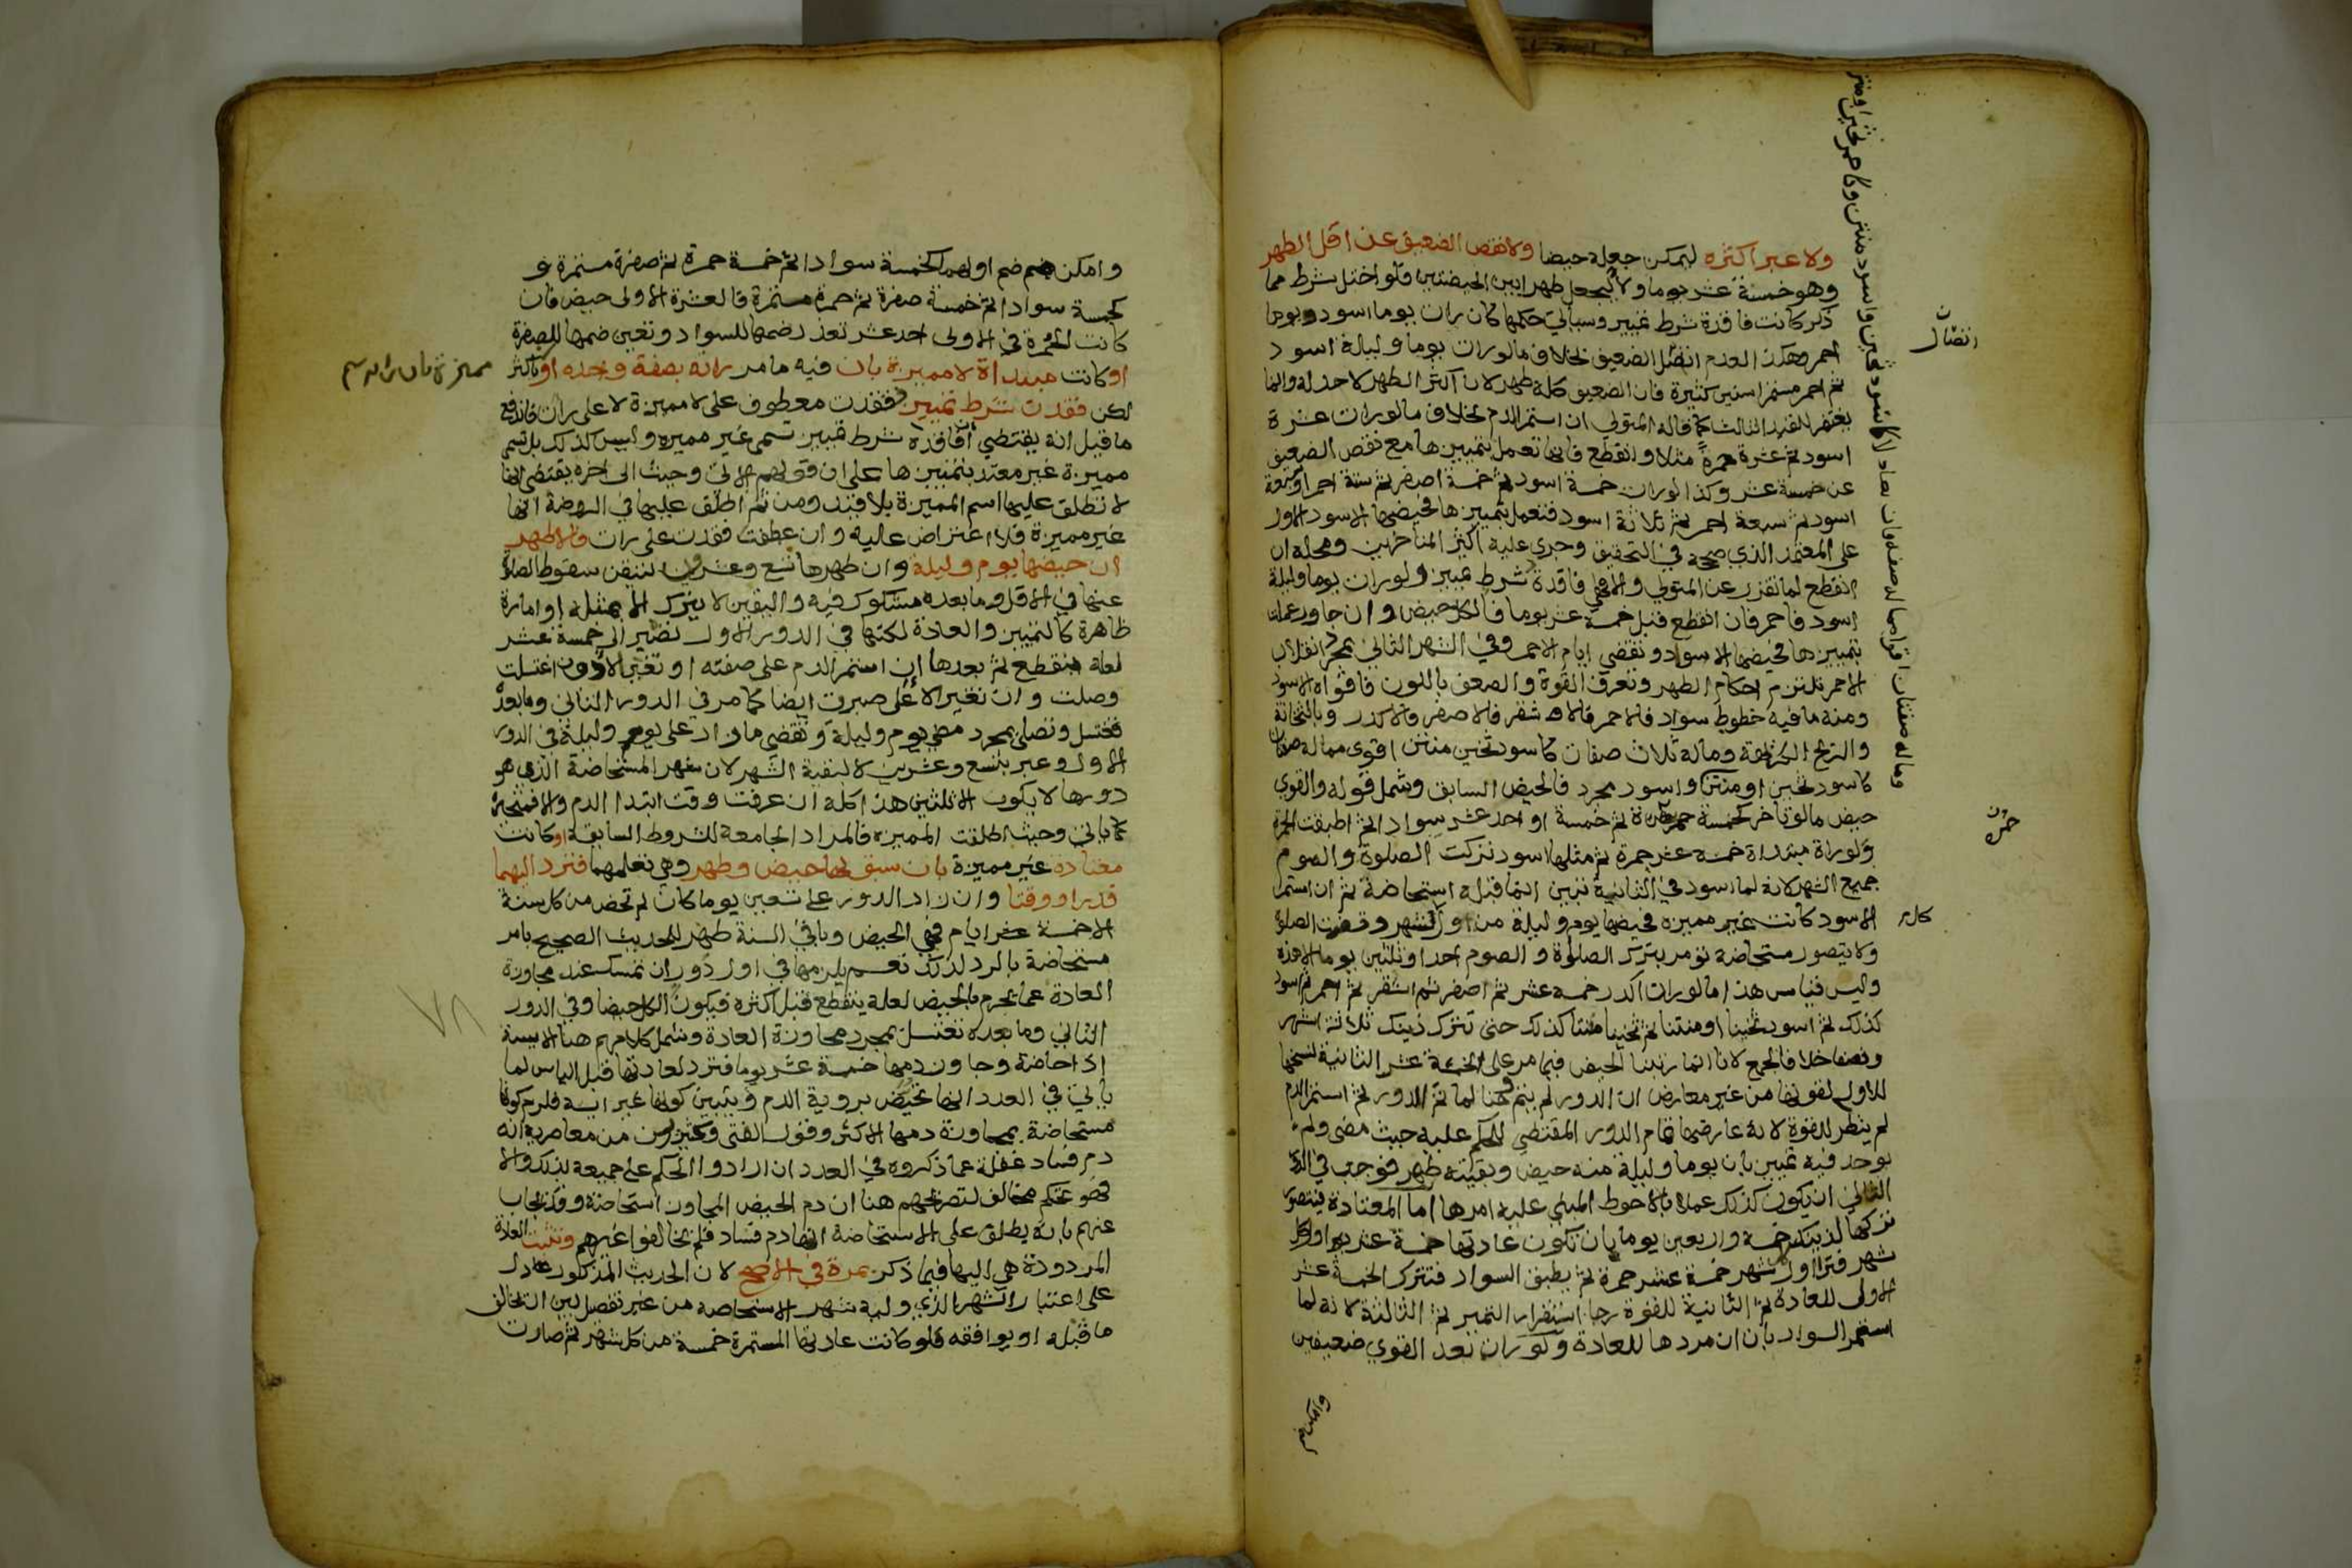 ولا عبر اكثره ليمكن جعله حيضا ولا نقص الضعيف عن اقل الطهر
وهو خمسة عشر يوما ولا ليجعل طهرا بين الحيضتين فلو اختل شرط مما
ذكر كانت فاقدة شرط تمييز وسياتي حكمها كان رات يوما اسود ويوما
احمر وهكذا لعدم اتصال الضعيف بخلاف ما لو رات يوما وليلة اسود
ثم احمر مستمرا سنين كثيرة فان الضعيف كله طهر لان اكثر الطهر لا حد له وانما
يفتقر للقيد الثالث كما قاله المتولي ان استمر الدم بخلاف ما لو رات عشرة
اسود ثم عشرة حمرة مثلا وانقطع فانها تعمل بتمييزها مع نقص الضعيف
عن خمسة عشر وكذا لو رات خمسة اسود ثم خمسة اصفر ثم ستة احمر
اسود ثم سبعة احمر ثم ثلاثة اسود فتعمل بتمييزها فحيضها الاسود الاول
على المعتمد الذي صححه في التحقيق وجرى عليه اكثر المتاخرين ومحله ان
انقطع لما تقرر عن المتولي والا فهي فاقدة شرط تمييز ولو رات يوما وليلة
اسود فاحمر فان انقطع قبل خمسة عشر يوما فالكل حيض وان جاوز عملت
بتمييزها فحيضها الاسود وتقضي ايام الاحمر وفي الشهر الثاني بمجرد انقلاب
الاحمر تلتزم احكام الطهر وتعرف القوة والضعف باللون فاقواه الاسود
ومنه ما فيه خطوط سواد فالاحمر فالاشقر فالاصفر فالاكدر وبالثخانة
والريح الكريهة وماله ثلاث صفات كاسود ثخين منتن اقوى مما له صفتان
كاسود ثخين او منتن واسود مجرد فالحيض السابق وشمل قوله والقوي
حيض ما لو تاخر كخمسة حمرة ثم خمسة او احد عشر سوادا ثم اطبقت الحمرة
ولو رات مبتداة خمسة عشر حمرة ثم مثلها اسود تركت الصلوة والصوم
جميع الشهر لانه لما اسود في الثانية تبين ان ما قبله استحاضة ثم ان استمر
الاسود كانت غير مميزة فحيضها يوم وليلة من اول شهر وقضت الصلاة
ولا يتصور مستحاضة تؤمر بترك الصلوة والصوم احدا وثلثين يوما الا هذه
وليس قياس هذا ما لو رات اكدر خمسة عشر ثم اصفر ثم اشقر ثم احمر ثم اسود
كذلك ثم اسود ثخينا او منتنا ثم ثخينا منتنا كذلك حتى تترك ذينك ثلاثة اشهر
ونصفا خلافا لجمع لانا انما رتبنا الحيض فيما مر على الخمسة عشر الثانية لنسخها
للاول لقوتها من غير معارض ان الدور لم يتم وهنا لما تم الدور ثم استمر الدم
لم ينظر للقوة لانه عارضها تمام الدور المقتضي للحكم عليه حيث مضى ولم
يوجد فيه تمييز بان يوما وليلة منه حيض وبقيته طهر فوجب في
الثاني ان يكون كذلك عملا بالاحوط المبني عليه امرها اما المعتادة فيتصور
تركها لذينك خمسة واربعين يوما بان تكون عادتها خمسة عشر يوما اول كل
شهر فترا اول شهر خمسة عشر حمرة ثم يطبق السواد فتترك الخمسة عشر
الاولى للعادة ثم الثانية للقوة رجاء استقرار التمييز ثم الثالثة لانه لما
استمر السواد بان ان مردها للعادة ولو رات بعد القوي ضعيفين
اتصال
حمرة
كل
وامكن
وامكن ضم اولهما كخمسة سوادا ثم خمسة حمرة ثم صفرة مستمرة و
كخمسة سوادا ثم خمسة صفرة ثم حمرة مستمرة فالعشرة الاولى حيض فان
كانت الحمرة في الاولى احد عشر تعذر ضمها للسواد وتعين ضمها للصفرة
او كانت مبتداة لا مميزة بان فيه ما مر راته بصفة وحده او باكثر
لكن فقدت شرط تمييز ففقدت معطوف على لا مميزة لا على رات فاندفع
ما قيل انه يقتضي ان فاقدة شرط تمييز تسمى غير مميزة وليس كذلك بل تسمى
مميزة غير معتد بتمييزها على ان قولهم الاتي وحيث الى اخره يقتضي انها
لا تطلق عليها اسم المميزة بلا قيد ومن ثم اطلق عليها في الروضة انها
غير مميزة فلا اعتراض عليه وان عطفت فقدت على رات فالاظهر
ان حيضها يوم وليلة وان طهرها تسع وعشرون لتيقن سقوط الصلاة
عنها في الاقل وما بعده مشكوك فيه واليقين لا يترك الا بمثله او امارة
ظاهرة كالتمييز والعادة لكنها في الدور الاول تصير الى خمسة عشر
لعله ينقطع ثم بعدها ان استمر الدم على صفته او تغير لادون اغتسلت
وصلت وان تغير لاعلى صبرت ايضا كما مر في الدور الثاني وما بعده
تغتسل وتصلي بمجرد مضي يوم وليلة وتقضي ما زاد على يوم وليلة في الدور
الاول وعبر بتسع وعشرين لا لبقية الشهر لان شهر المستحاضة الذي هو
دورها لا يكون الا ثلثين هذا كله ان عرفت وقت ابتدا الدم والا فمتحيرة
كما ياتي وحيث اطلقت المميزة فالمراد الجامعة للشروط السابقة او كانت
معتادة غير مميزة بان سبق لها حيض وطهر وهي تعلمهما فترد اليهما
قدرا ووقتا وان زاد الدور على تسعين يوما كان لم تحض من كل سنة
الا خمسة عشر ايام فهي الحيض وباقي السنة طهر للحديث الصحيح بامر
مستحاضة بالرد لذلك نعم يلزمها في اول دور ان تمسك عند مجاوزة
العادة عما يحرم بالحيض لعله ينقطع قبل اكثره فيكون الكل حيضا وفي الدور
الثاني وما بعده تغتسل بمجرد مجاوزة العادة وشمل كلامهم هنا الايسة
اذا حاضت وجاوز دمها خمسة عشر يوما فترد لعادتها قبل الياس لما
ياتي في العدد انها تحيض بروية الدم ويتبين كونها غير ايسة فلزم كونها
مستحاضة بمجاوزة دمها الاكثر وقول الفتى وكثيرون من معاصريه انه
دم فساد غفلة عما ذكروه في العدد ان ارادوا الحكم على جميعه بذلك والا
فهو تحكم مخالف لتصريحهم هنا ان دم الحيض المجاوز استحاضة وقد يجاب
عنهم بانه يطلق على الاستحاضة انها دم فساد فلم يخالفوا غيرهم وتثبت العادة
المردودة هي اليها فيما ذكر بمرة في الاصح لان الحديث المذكور دل
على اعتبار الشهر الذي وليه شهر الاستحاضة من غير تفصيل بين ان يخالف
ما قبله او يوافقه فلو كانت عادتها المستمرة خمسة من كل شهر ثم صارت